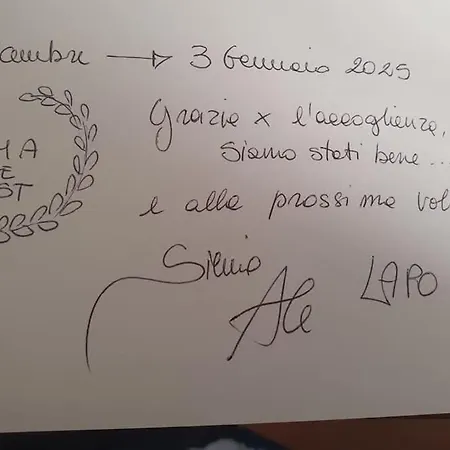 ambre → 3 Gennaio 2025
Grazie x l'accoglienza,
Siamo stati bene...
e alla prossima vol
MA
E
ST
Silvia
Ale
LAPO